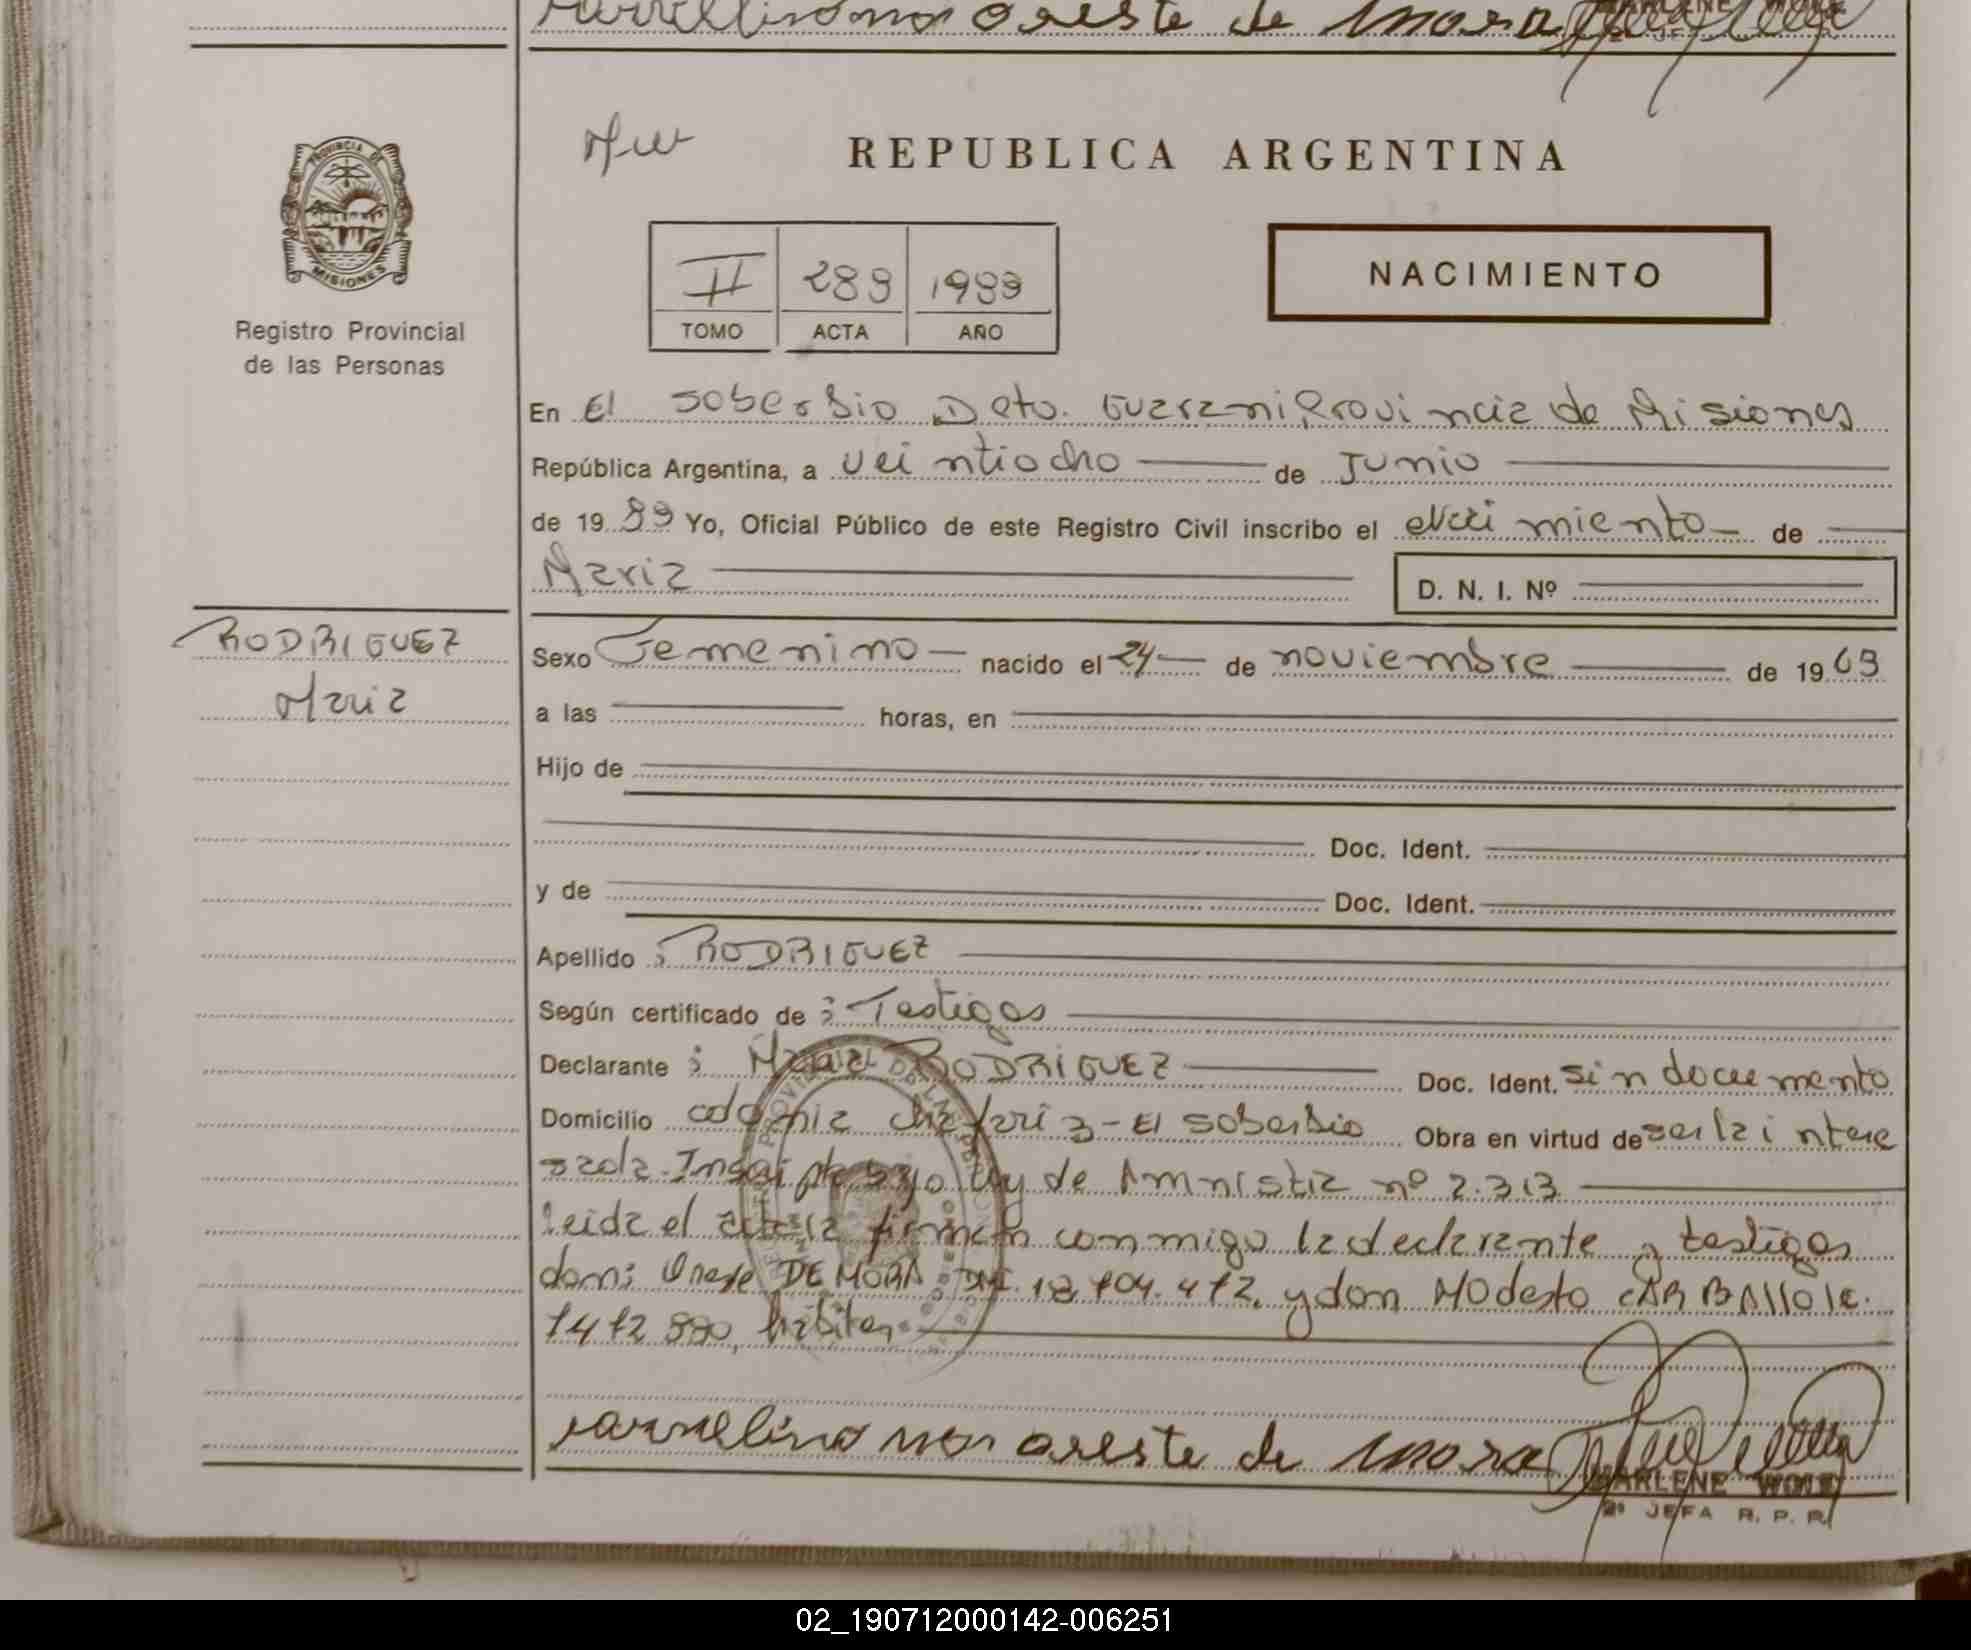 oreste de mora
REPUBLICA ARGENTINA
PROVINCIA DE
MISIONES
Registro Provincial
de las Personas
II 289 1989
TOMO ACTA AÑO
NACIMIENTO
En El soberbio Dto. Guarani Provincia de Misiones
República Argentina, a veintiocho de Junio
de 19 89 Yo, Oficial Público de este Registro Civil inscribo el Nacimiento de
Maria
D. N. I. Nº
RODRIGUEZ
Maria
Sexo Femenino nacido el 24 de noviembre de 19 69
a las horas, en
Hijo de
Doc. Ident.
y de Doc. Ident.
Apellido : RODRIGUEZ
Según certificado de : Testigos
Declarante : Maria RODRIGUEZ Doc. Ident. sin documento
Domicilio colonia chafariz - El soberbio Obra en virtud de ser la intere
sada. Inscripta bajo ley de Amnistia nº 2.313
Leida el acta la firman conmigo la declarante y testigos
DE MORA DNI. 18.704.472. y don Modesto CARBALLO le.
7472990, habiles
oreste de mora
MARLENE
2º JEFA R. P. P.
02_190712000142-006251